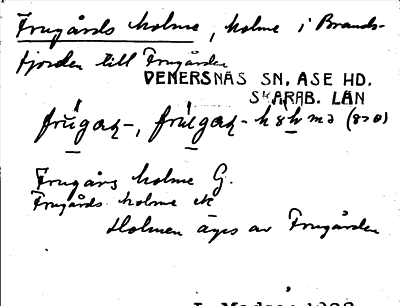 Frugårds holme, holme i Brands-
fjorden till Frugården
VENERSNÄS SN. ÅSE HD.
SKARAB. LÄN
Frugårs holme G.
Frugårds holme K
Holmen äges av Frugården